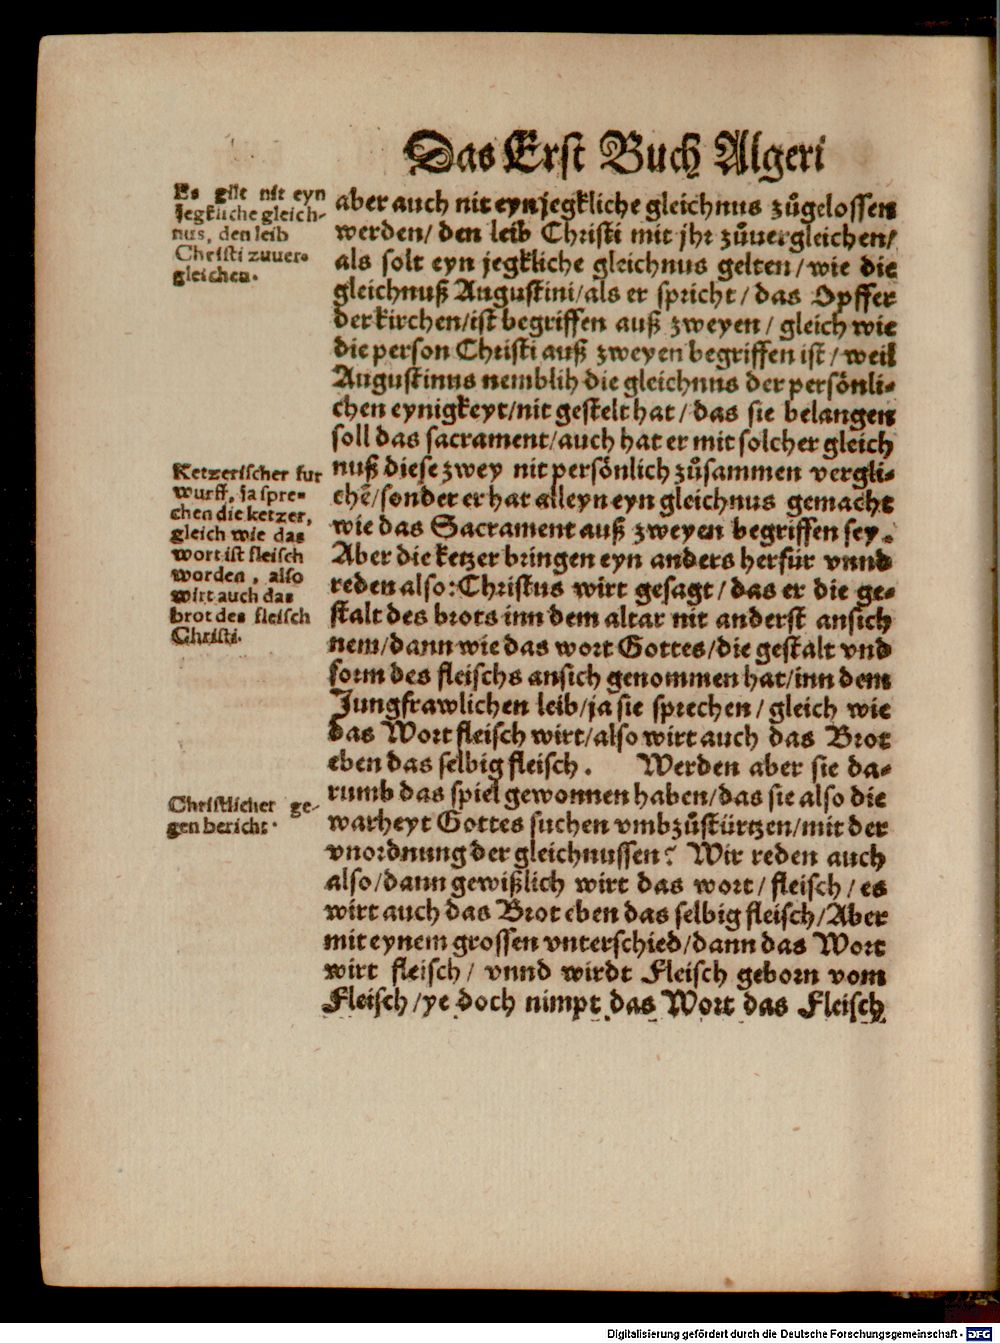 Das Erst Buch Algeri
Es gilt nit eyn
jegkliche gleich-
nus, den leib
Christi zuuer-
gleichen.
aber auch nit eyn jegkliche gleichnus zůgelossen
werden/ den leib Christi mit jhr zůuergleichen/
als solt eyn jegkliche gleichnus gelten/wie die
gleichnuß Augustini/als er spricht/das Opffer
der kirchen/ist begriffen auß zweyen/ gleich wie
die person Christi auß zweyen begriffen ist/weil
Augustinus nemblih die gleichnus der persönli-
chen eynigkeyt/nit gestelt hat/das sie belangen
soll das sacrament/auch hat er mit solcher gleich
nuß diese zwey nit persönlich zůsammen vergli-
chē/sonder er hat alleyn eyn gleichnus gemacht
wie das Sacrament auß zweyen begriffen sey.
Aber die ketzer bringen eyn anders herfür vnnd
reden also: Christus wirt gesagt/das er die ge-
stalt des brots inn dem altar nit anderst ansich
nem/dann wie das wort Gottes/die gestalt vnd
form des fleischs ansich genommen hat/inn dem
Jungfrawlichen leib/ja sie sprechen/gleich wie
das Wort fleisch wirt/also wirt auch das Brot
eben das selbig fleisch. Werden aber sie da-
rumb das spiel gewonnen haben/das sie also die
warheyt Gottes suchen vmbzůstürtzen/mit der
vnordnung der gleichnussen? Wir reden auch
also/dann gewißlich wirt das wort/ fleisch/ es
wirt auch das Brot eben das selbig fleisch/Aber
mit eynem grossen vnterschied/dann das Wort
wirt fleisch/ vnnd wirdt Fleisch geborn vom
Fleisch/ye doch nimpt das Wort das Fleisch
Ketzerischer fur
wurff, ja spre-
chen die ketzer,
gleich wie das
wort ist fleisch
worden, also
wirt auch das
brot des fleisch
Christi.
Christlicher ge-
gen bericht.
Digitalisierung gefördert durch die Deutsche Forschungsgemeinschaft - DFG